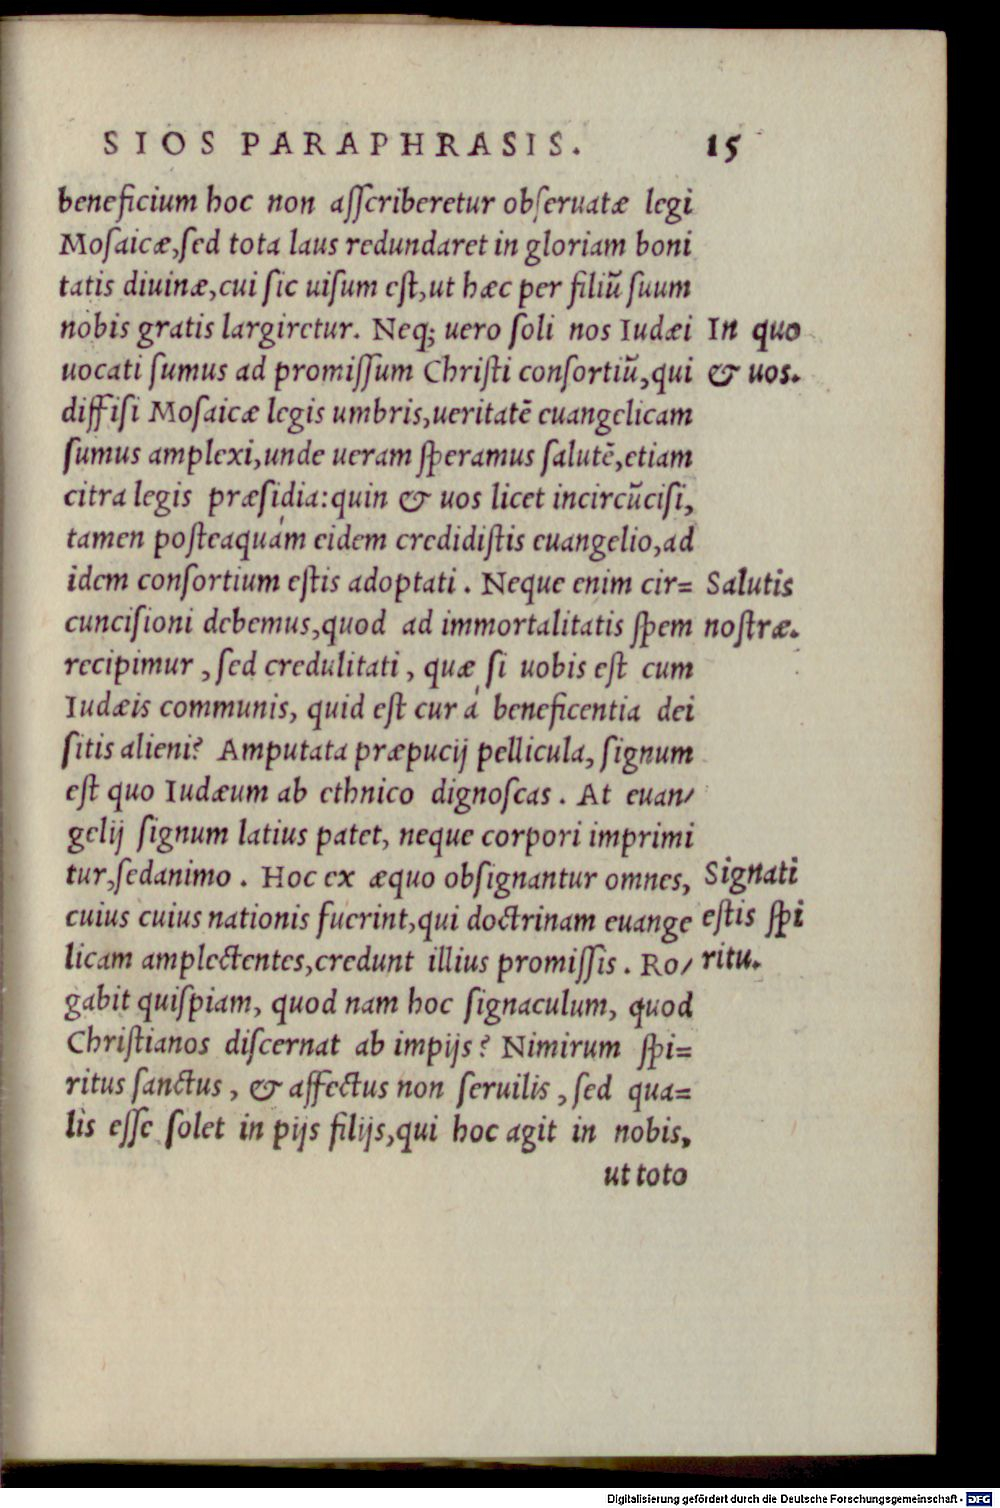 SIOS PARAPHRASIS. 15
beneficium hoc non aſſcriberetur obſeruatæ legi
Moſaicæ,ſed tota laus redundaret in gloriam boni
tatis diuinæ,cui ſic uiſum eſt,ut hæc per filiũ ſuum
nobis gratis largiretur. Neq; uero ſoli nos Iudæi
In quo
uocati ſumus ad promiſſum Chriſti conſortiũ,qui
& uos.
diffiſi Moſaicæ legis umbris,ueritatẽ euangelicam
ſumus amplexi,unde ueram ſperamus ſalutẽ,etiam
citra legis præſidia:quin & uos licet incircũciſi,
tamen poſteaquám eidem credidiſtis euangelio,ad
idem conſortium eſtis adoptati. Neque enim cir=
Salutis
cunciſioni debemus,quod ad immortalitatis ſpem
noſtræ.
recipimur, ſed credulitati, quæ ſi uobis eſt cum
Iudæis communis, quid eſt cur á beneficentia dei
ſitis alieni? Amputata præpucij pellicula, ſignum
eſt quo Iudæum ab ethnico dignoſcas. At euan/
gelij ſignum latius patet, neque corpori imprimi
tur,ſedanimo. Hoc ex æquo obſignantur omnes,
Signati
cuius cuius nationis fuerint,qui doctrinam euange
eſtis ſpi
licam amplectentes,credunt illius promiſſis. Ro/
ritu.
gabit quiſpiam, quod nam hoc ſignaculum, quod
Chriſtianos diſcernat ab impijs? Nimirum ſpi=
ritus ſanctus, & affectus non ſeruilis, ſed qua=
lis eſſe ſolet in pijs filijs,qui hoc agit in nobis,
ut toto
Digitalisierung gefördert durch die Deutsche Forschungsgemeinschaft - DFG